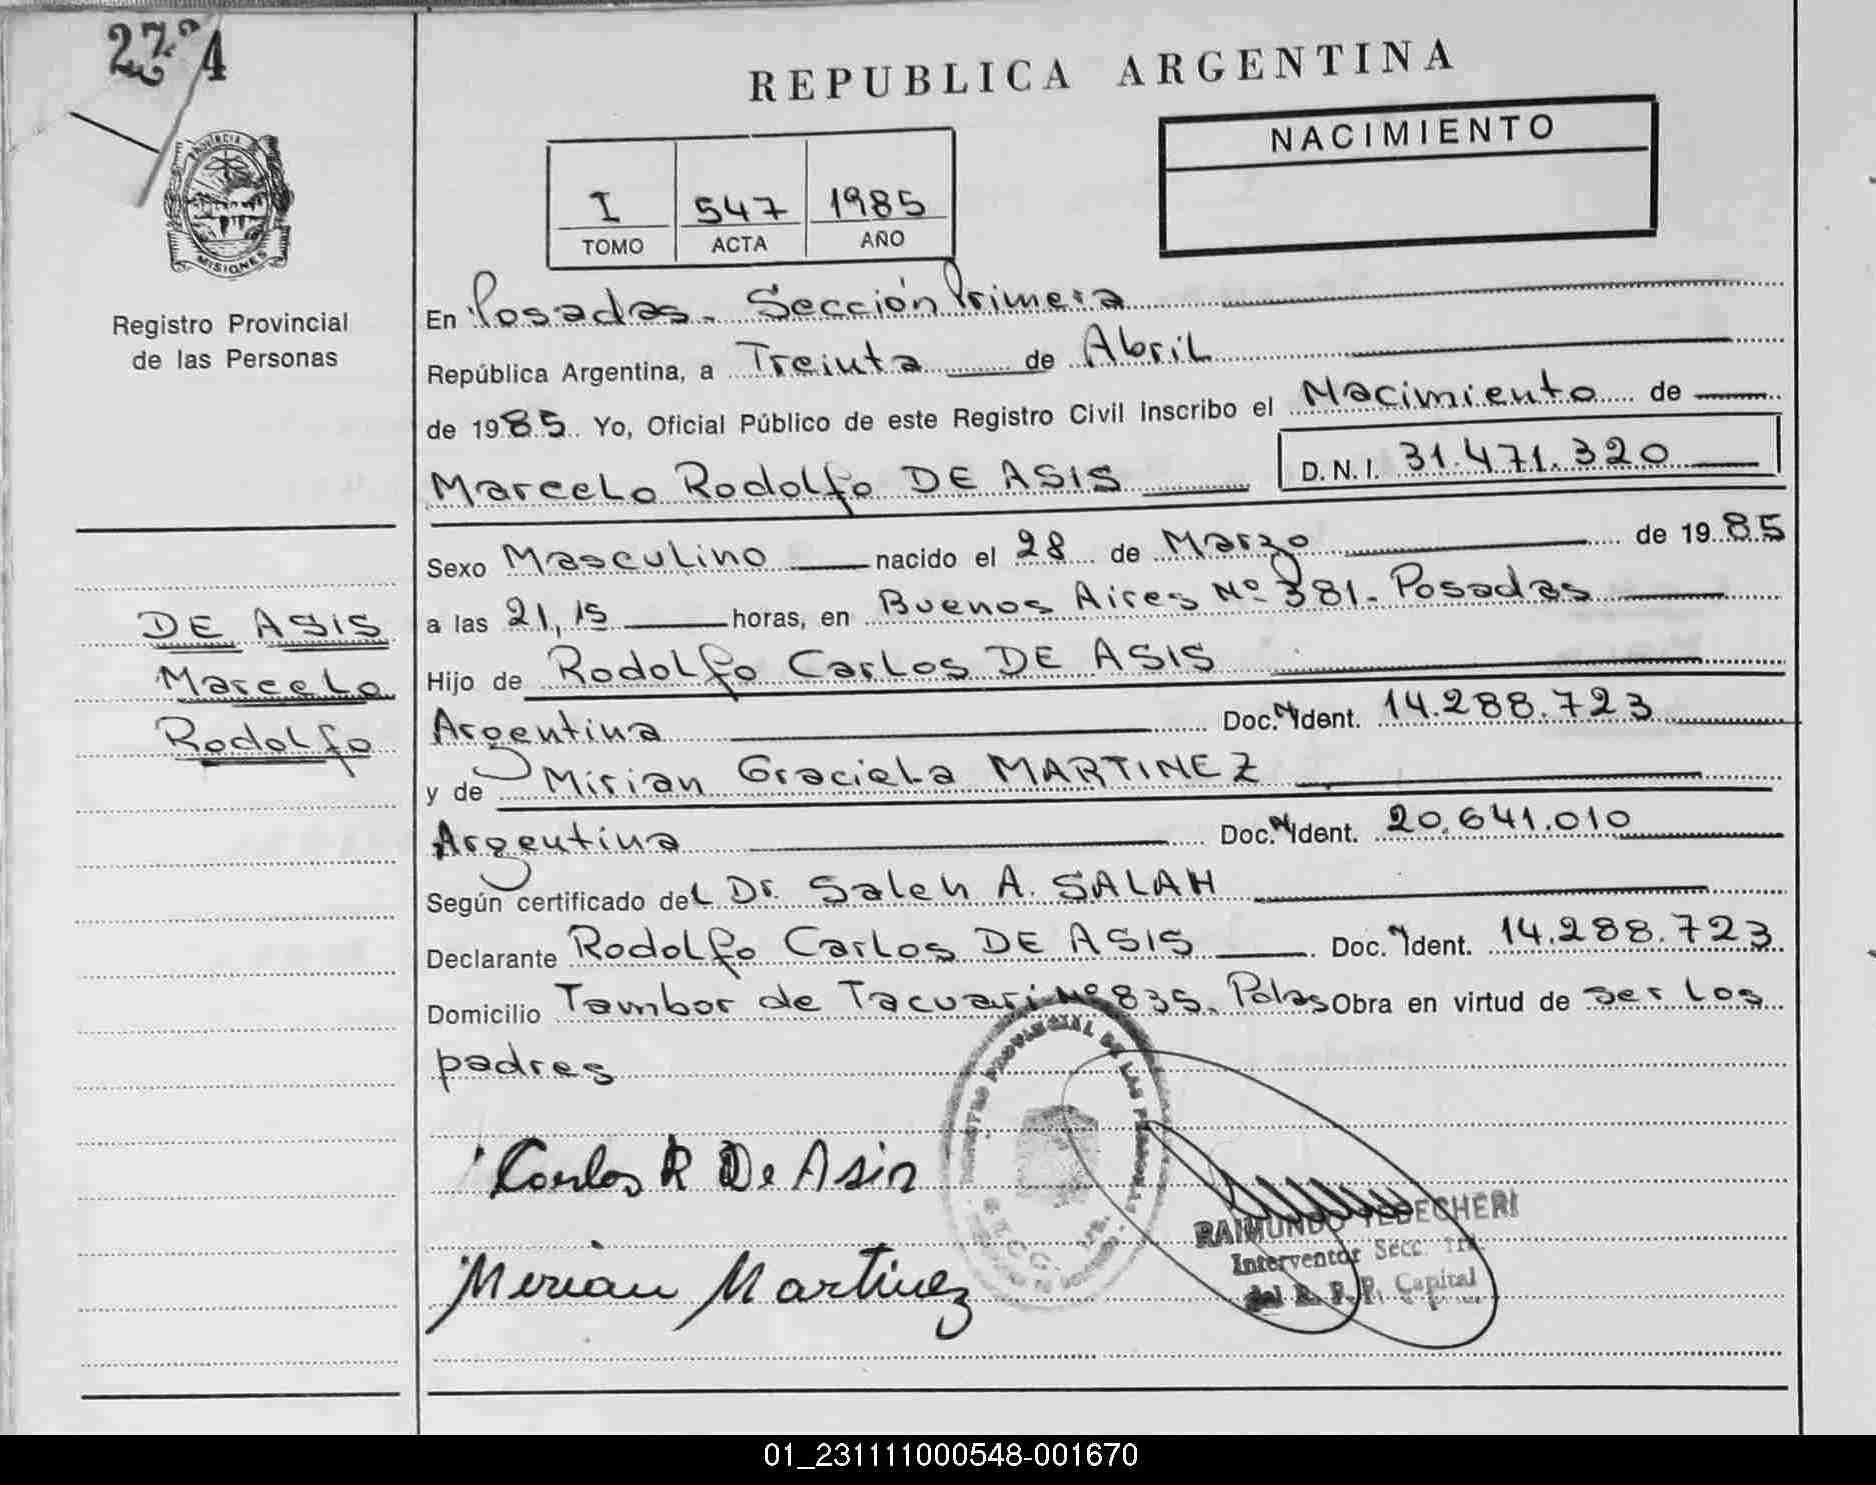 27 4
REPUBLICA ARGENTINA
NACIMIENTO
I 547 1985
TOMO ACTA AÑO
PROVINCIA DE
MISIONES
Registro Provincial
de las Personas
En Posadas. Sección Primera
República Argentina, a Treinta de Abril
de 1985 Yo, Oficial Público de este Registro Civil inscribo el Nacimiento de
Marcelo Rodolfo DE ASIS D.N.I. 31.471.320
Sexo Masculino nacido el 28 de Marzo de 1985
a las 21,15 horas, en Buenos Aires Nº 381. Posadas
Hijo de Rodolfo Carlos DE ASIS
Argentina Doc. Ident. 14.288.723
y de Mirian Graciela MARTINEZ
Argentina Doc. Ident. 20.641.010
Según certificado del Dr. Saleh A. SALAH
Declarante Rodolfo Carlos DE ASIS Doc. Ident. 14.288.723
Domicilio Tambor de Tacuari Nº 835. Pdas Obra en virtud de ser los
padres
DE ASIS
Marcelo
Rodolfo
REGISTRO PROVINCIAL DE LAS PERSONAS
Carlos R De Asis
Mirian Martinez
RAIMUNDO
Interventor Secc. 1ra.
del R. P. P. Capital
01_231111000548-001670